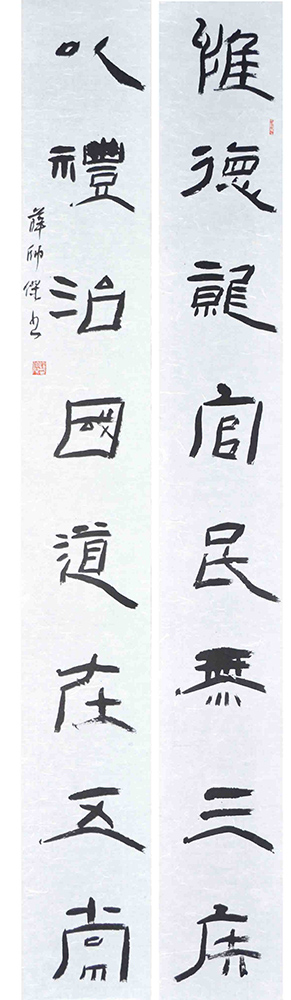 惟德能官民無三疾
以禮治國道在五常
薛帥傑书